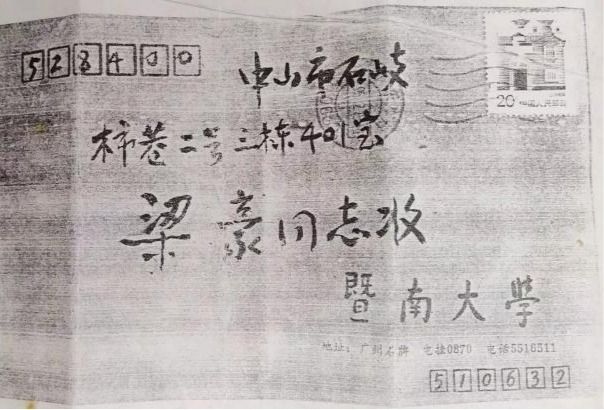 528400
中山市石岐
柿巷二号三栋401室
梁豪同志收
20 中国人民邮政
暨南大學
地址：广州石牌 电挂0870 电话5516511
510632